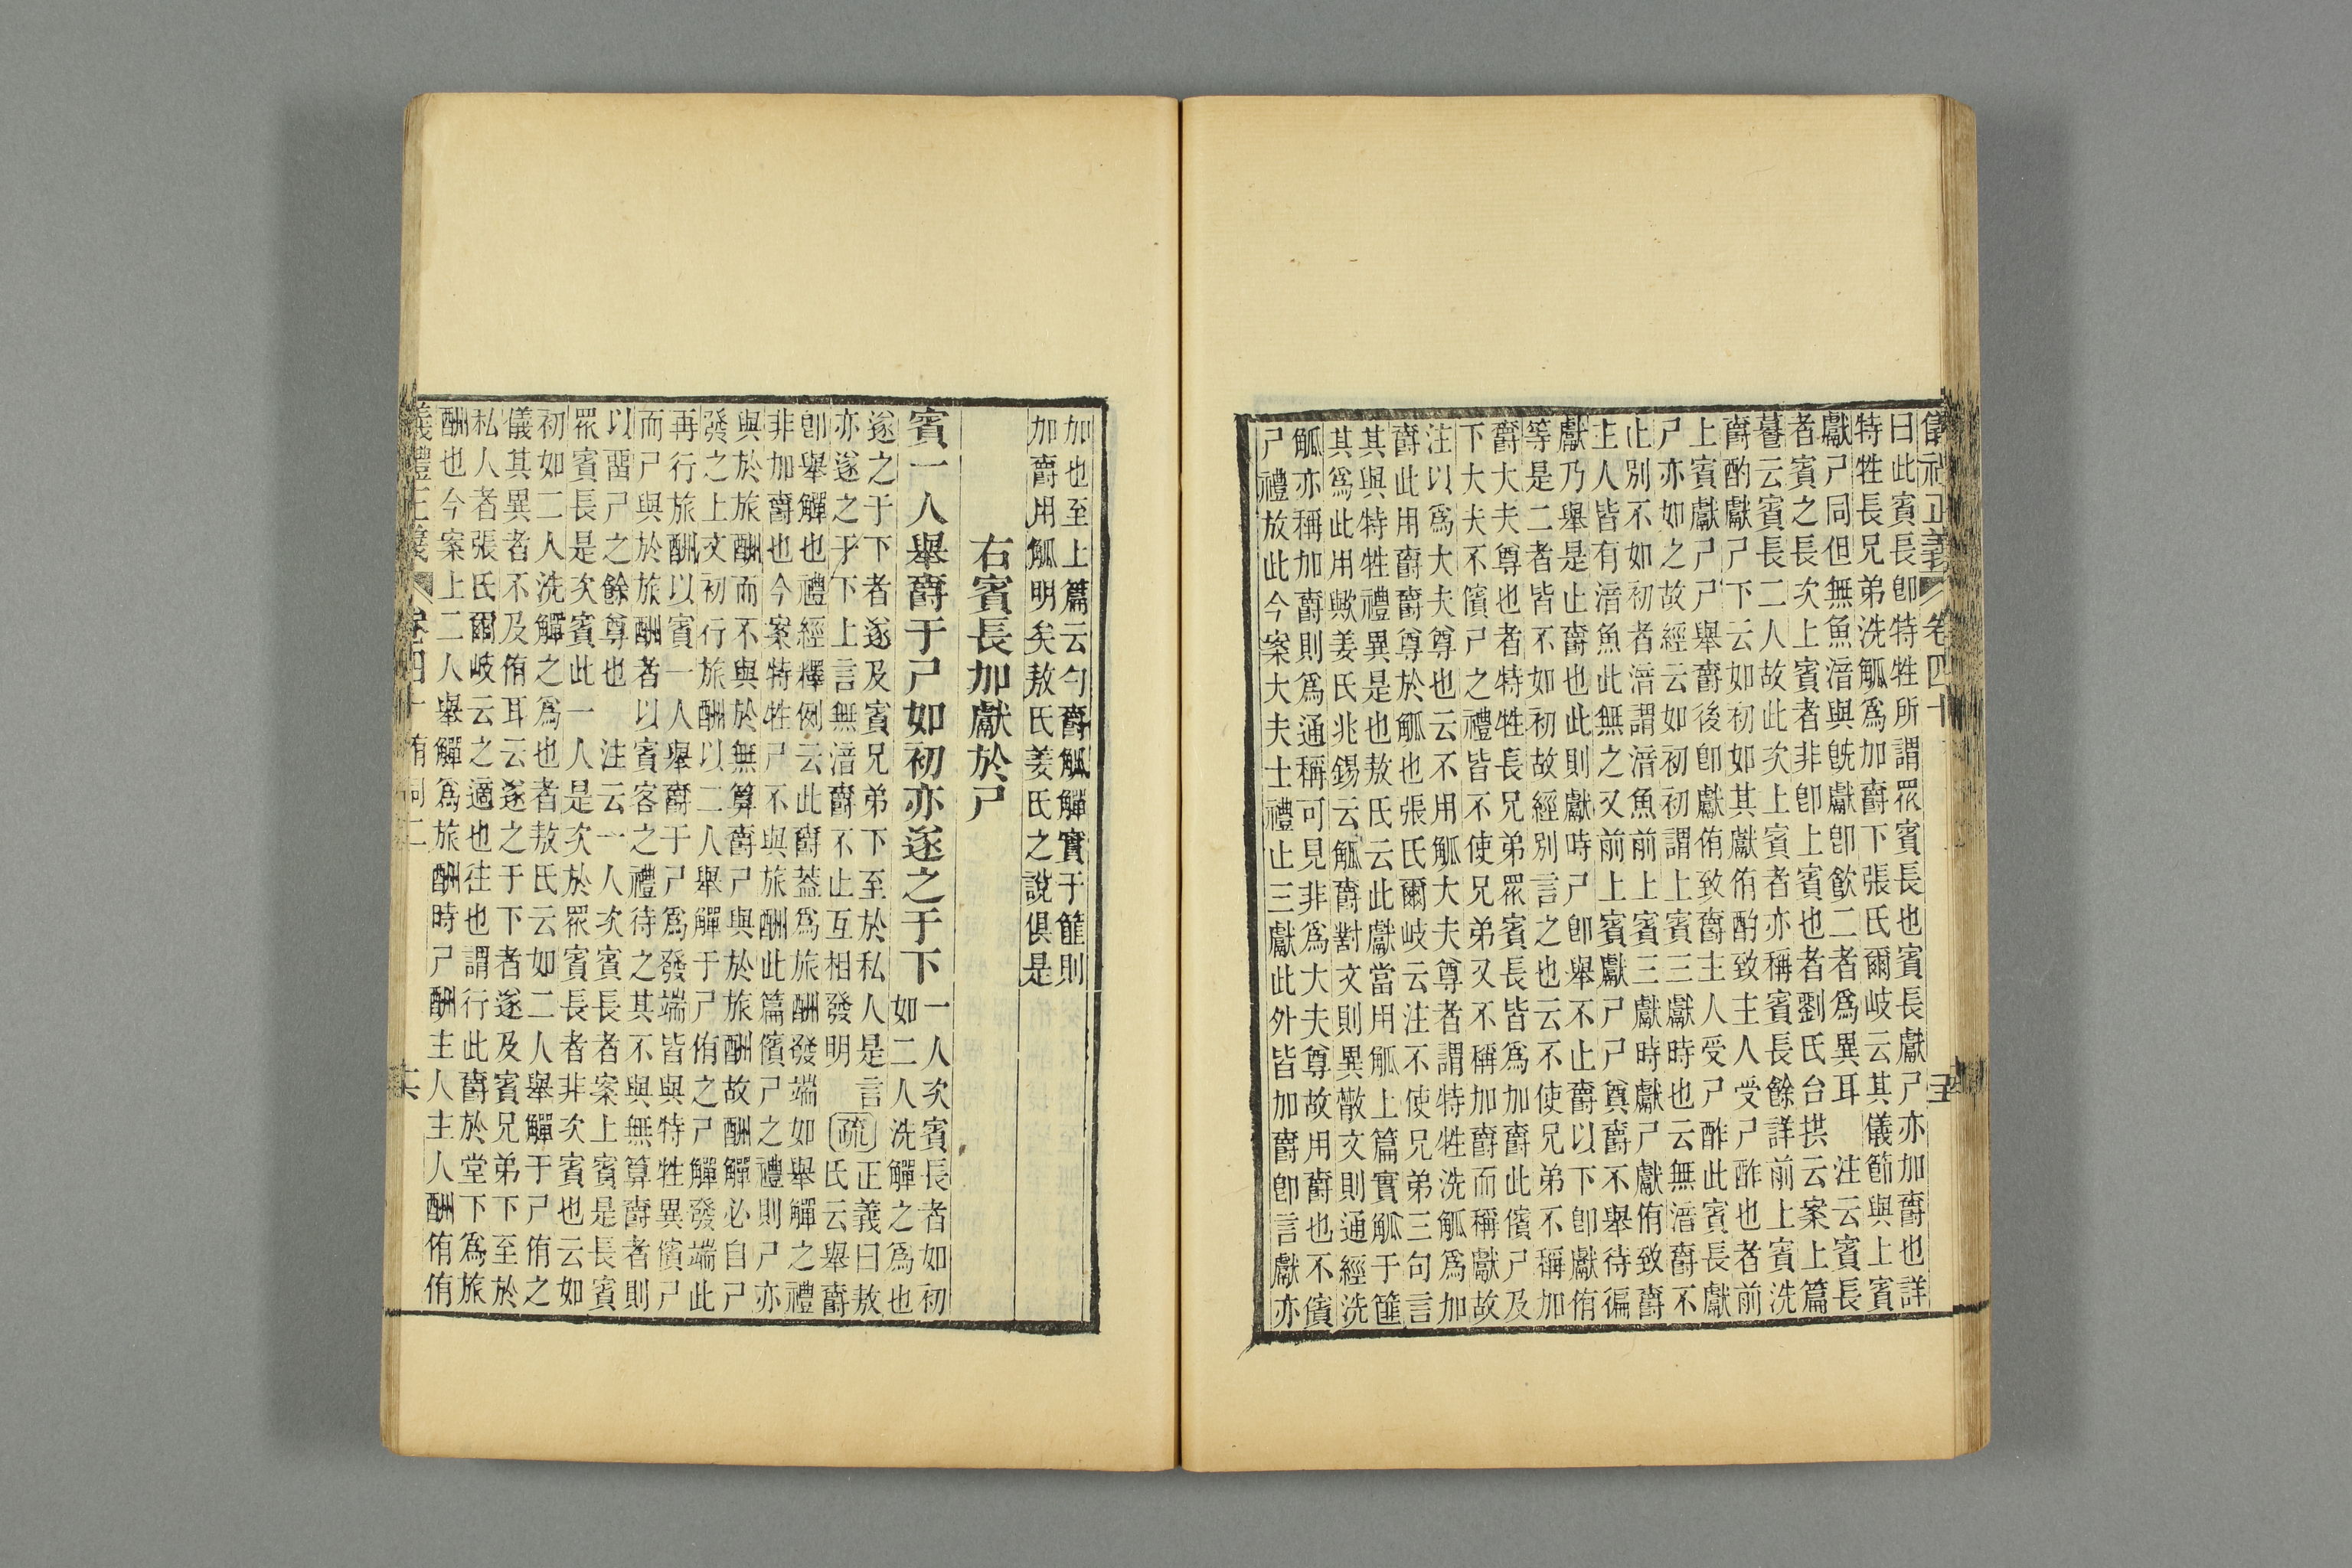 儀禮正義 卷四十 五
曰此賓長卽特牲所謂眾賓長也賓長獻尸亦加爵也詳
特牲長兄弟洗觚爲加爵下張氏爾岐云其儀節與上賓
獻尸同但無魚湆與旣獻卽飮二者爲異耳 注云賓長
者賓之長次上賓者非卽上賓也者劉氏台拱云案上篇
暮云賓長二人故此次上賓者亦稱賓長餘詳前上賓洗
爵酌獻尸下云如初如其獻侑酌致主人受尸酢也者前
上賓獻尸尸舉爵後卽獻侑致爵主人受尸酢此賓長獻
尸亦如之故經云如初初謂上賓三獻時也云無湆爵不
止別不如初者湆謂湆魚前上賓三獻時獻尸獻侑致爵
主人皆有湆魚此無之又前上賓獻尸尸奠爵不舉待徧
獻乃舉是止爵也此則獻時尸卽舉不止爵以下卽獻侑
等是二者皆不如初故經別言之也云不使兄弟不稱加
爵大夫尊也者特牲長兄弟眾賓長皆爲加爵此儐尸及
下大夫不儐尸之禮皆不使兄弟又不稱加爵而稱獻故
注以爲大夫尊也云不用觚大夫尊者謂特牲洗觚爲加
爵此用爵爵尊於觚也張氏爾岐云注不使兄弟三句言
其與特牲禮異是也敖氏云此獻當用觚上篇實觚于篚
其爲此用歟姜氏兆錫云觚爵對文則異散文則通經洗
觚亦稱加爵則爲通稱可見非爲大夫尊故用爵也不儐
尸禮放此今案大夫士禮止三獻此外皆加爵卽言獻亦
加也至上篇云勺爵觚觶實于篚則
加爵用觚明矣敖氏姜氏之說俱是
右賓長加獻於尸
賓一人舉爵于尸如初亦遂之于下
一人次賓長者如初
如二人洗觶之爲也
遂之于下者遂及賓兄弟下至於私人是言
亦遂之于下上言無湆爵不止互相發明
疏
正義曰敖
氏云舉爵
卽舉觶也禮經釋例云此爵蓋爲旅酬發端如舉觶之禮
非加爵也今案特牲尸不與旅酬此篇儐尸之禮則尸亦
與於旅酬而不與於無算爵尸與於旅酬故酬觶必自尸
發之上文初行旅酬以二人舉觶于尸侑之尸觶發端此
再行旅酬以賓一人舉爵于尸爲發端皆與特牲異儐尸
而尸與於旅酬者以賓客之禮待之其不與無算爵者則
以畱尸之餘尊也 注云一人次賓長者案上賓是長賓
眾賓長是次賓此一人是次於眾賓長者非次賓也云如
初如二人洗觶之爲也者敖氏云如二人舉觶于尸侑之
儀其異者不及侑耳云遂之于下者遂及賓兄弟下至於
私人者張氏爾岐云之適也往也謂行此爵於堂下爲旅
酬也今案上二人舉觶爲旅酬時尸酬主人主人酬侑侑
義禮正義 卷四十 有司二 六